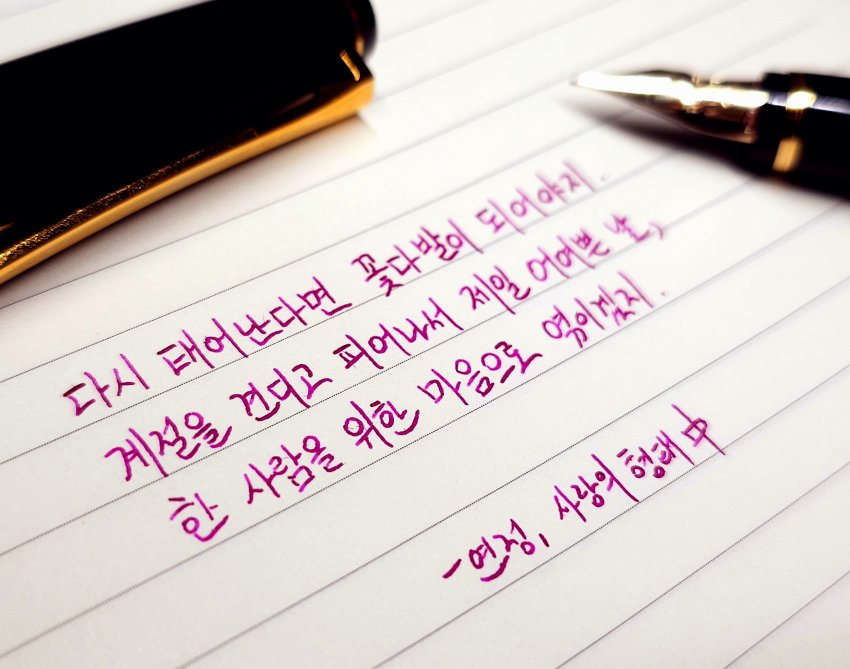 다시 태어난다면 꽃다발이 되어야지.
계절을 견디고 피어나서 제일 어여쁜 날,
한 사람을 위한 마음으로 엮이겠지.
- 연정, 사랑의 형태 中